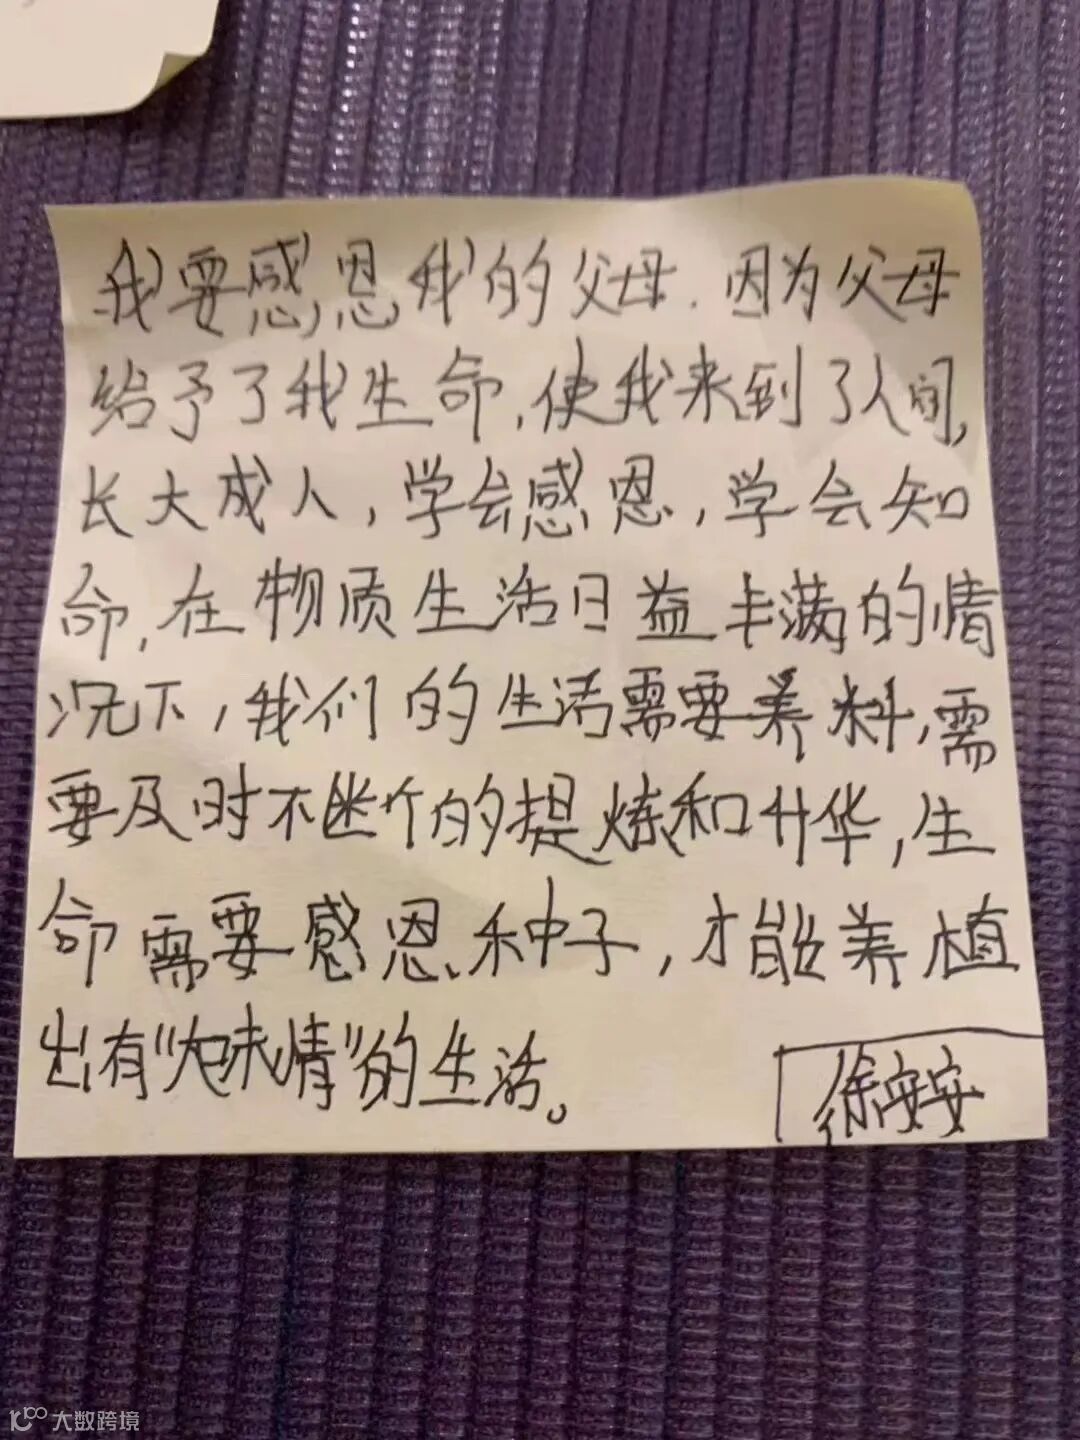 我要感恩我的父母.因为父母
给予了我生命,使我来到了人间,
长大成人,学会感恩,学会知
命,在物质生活日益丰满的情
况下,我们的生活需要养料,需
要及时不断的提炼和升华,生
命需要感恩种子,才能养植
出有“味情”的生活。
徐安安
大数跨境